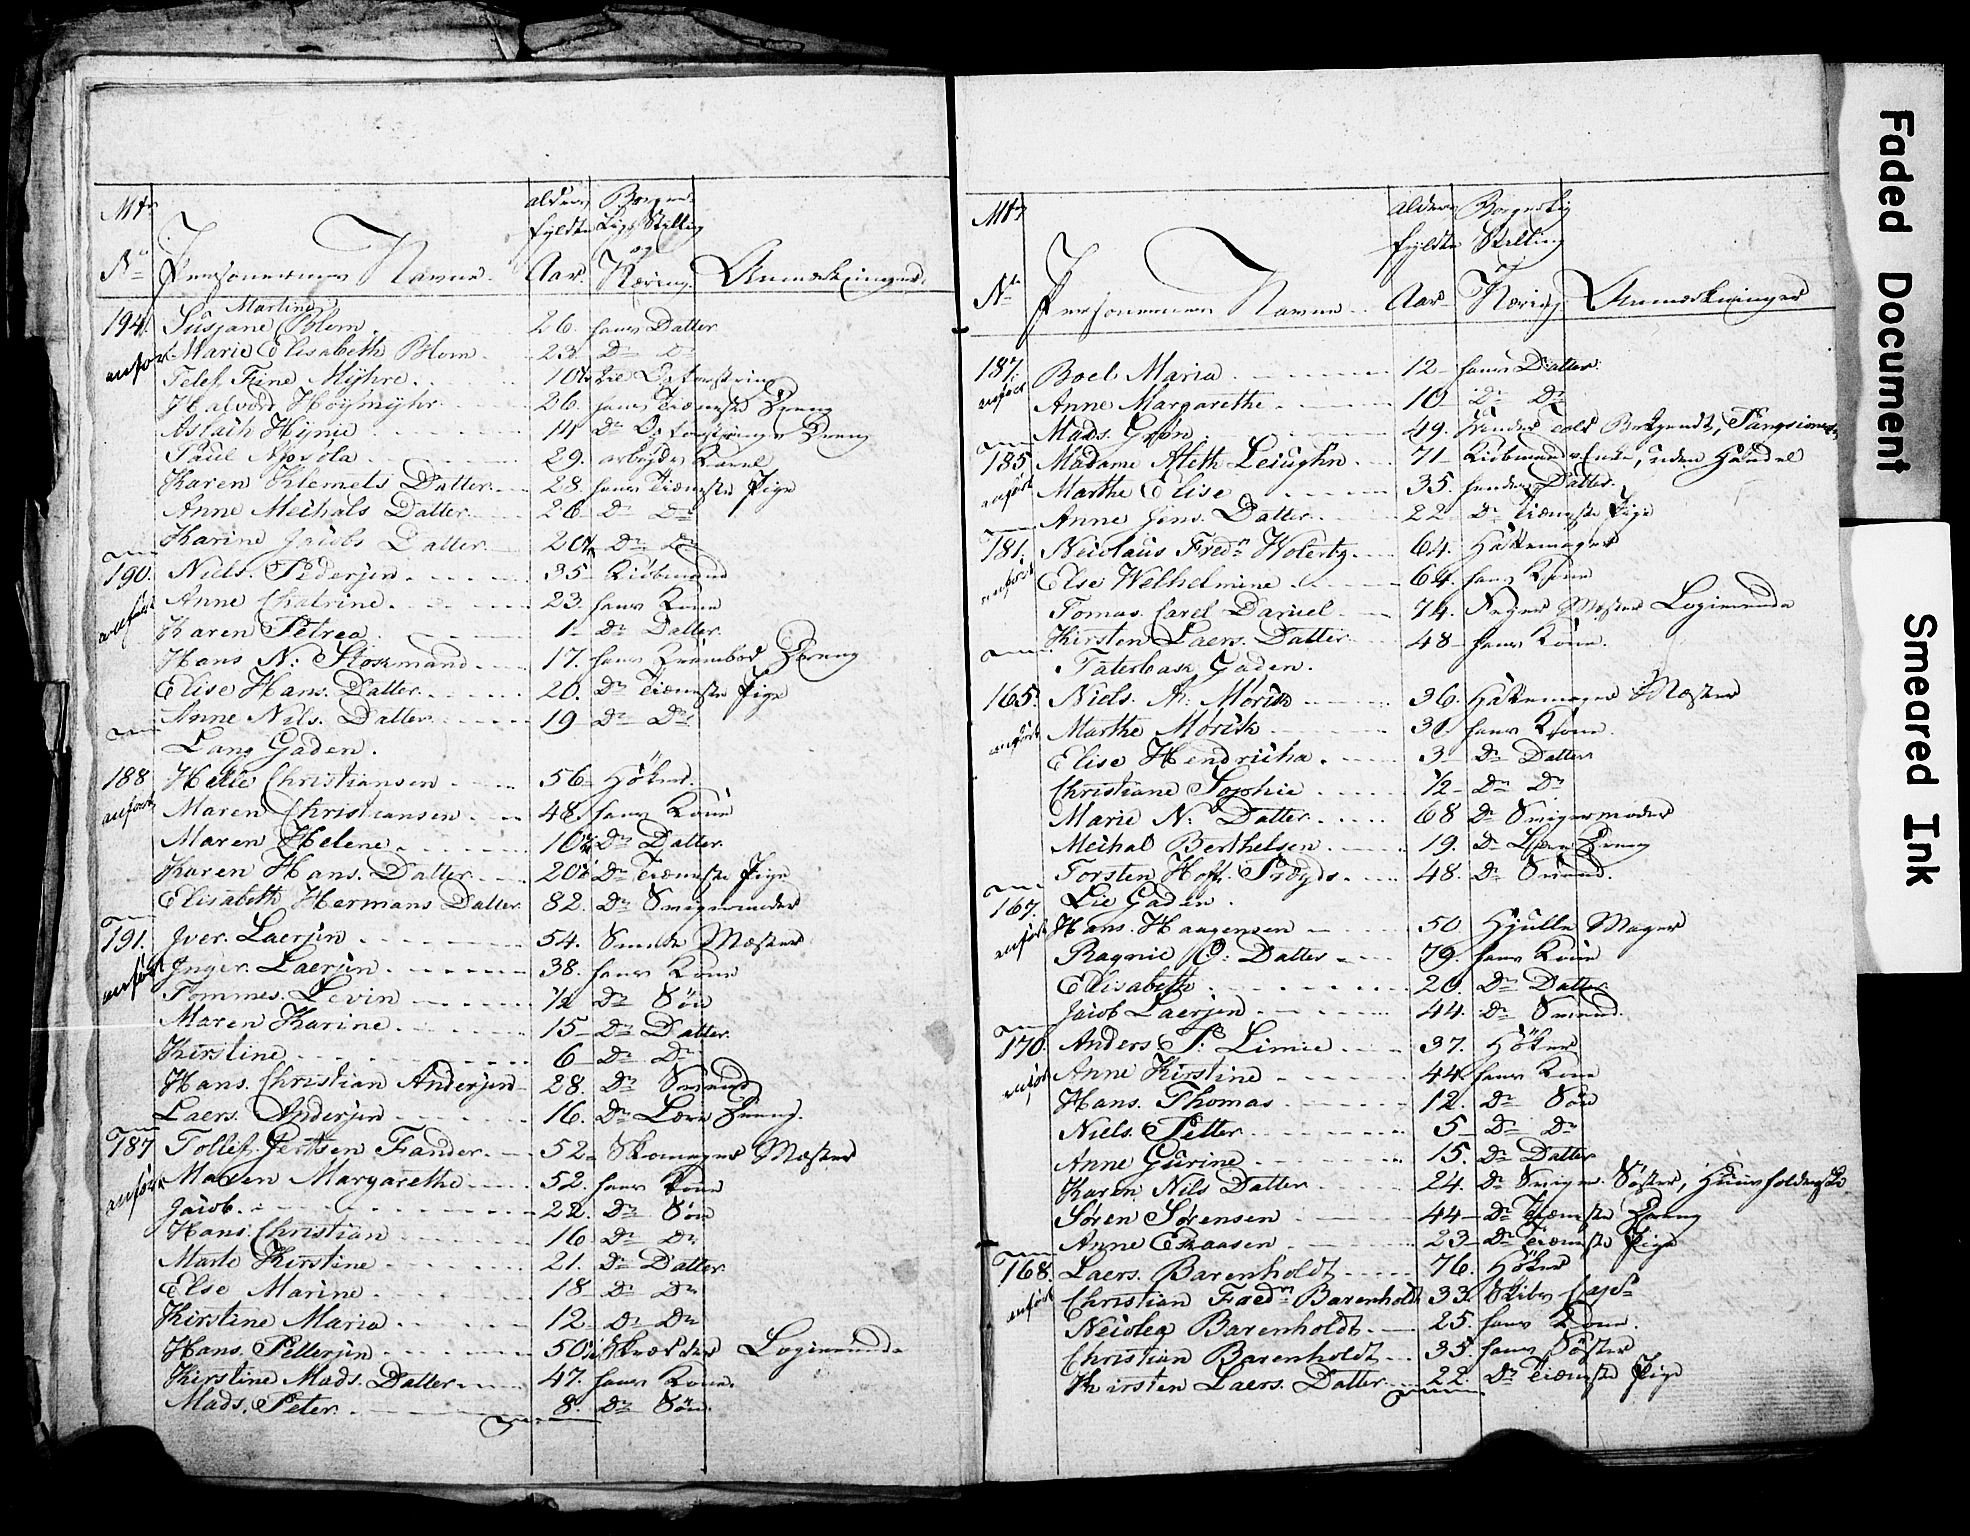 Mtr
No
Personernes Navne
alders fyldte Aar
Borgerlig Stilling og Næring
Anmerkninger
Martine
194. Susane Blom 26. hans Datter
anfør Marie Elisabeth Blom 23. Do Do
Telef Fine Myhre 10 til Opfostring
Halvord Høymyhr 26. hans Tieneste Dreng
Aslach Hijme 14 Do Opfostrings Dreng
Paul 29. arbeyds Karel
Karen Klemets Datter 28. hans Tieneste Pige
Anne Michals Datter 26 Do Do
Karine Jacobs Datter 20 Do Do
190. Niels Pedersen 35 Kiøbmand
anført Anne Chatrine 23. hans Kone
Karen Petrea 1 Do Datter
Hans N: Stokmand 17. hans Krambod Dreng
Elise Hans Datter 20. Do Tieneste Pige
Anne Nils. Datter 19 Do Do
Lang Gaden.
188 Helie Christiansen 56 Höker
anført Maren Christiansen 48. hans Kone
Maren Helene 10 Do Datter
Karen Hans. Datter 20 Do Tieneste Pige
Elisabeth Hermans Datter 82. Do Svigermoder
191. Iver. Laersen 54. Smede Mæster
anført Inger. Laersen 38. hans Kone
Tommes. Levin ½ Do Sön
Maren Karine 15 Do Datter
Kirstine 6 Do Do
Hans. Christian Andersen 28. Do Svend
Laers. Andersen 16. Do Lære Dreng.
187 Tollef. Jertsen Fander 52 Skomager Mæster
anført Maren Margarethe 52. hans Kone
Jacob. 22. Do Sön
Hans Christian 16 Do Do
Marte Kirstine 21. Do Datter
Else Marine 18 Do Do
Kirstine Maria 12 Do Do
Hans. Pettersen 50 Skræder Logierende
Kirstine Mads. Datter 47. hans Kone.
Mads. Peter 8. Do Sön.
Mtr
No
Personernes Navne
alders fyldte Aar
Borgerlig Stilling og Næring
Anmerkninger
187. Boel Maria 12 hans Datter
anført Anne Margarethe 10 Do Do
Mads. Grøn 49. Told Betjendt, Pangsionest
185 Madame Aleth Leiughn 71 Kiöbmands Enke, uden Handel
anført Marthe Elise 35. hendes Datter
Anne Jens. Datter 22 Do Tieneste Pige
181. Nicolaus Fredr Woterby 64. Hattemager
anført Else Welhelmine 64. hans Kone
Tomas. Carel Daniel 74. Mæster Logierende
Kirsten Laers. Datter 48 hans Kone.
Taterbask Gaden.
165. Niels. A. Mörch 36. Hattemager Mæster
anført Marthe Mörch 31. hans Kone.
Elise Hendricha 3 Do Datter
Christiane Sophie ½ Do Do
Marie N. Datter 68 Do Svigermoder
Michal Berthelsen 19. Do Lære Dreng
Torsten Hoft. 48. Do Svend.
Lie Gaden.
167. Hans. Haagensen 50. Hjulle Mager
anført Ragnie O: Datter 79. hans Kone
Elisabeth 20. Do Datter
Jacob Laersen 44. Do Svend.
170. Anders P: Limie 37. Höker
anført Anne Kirstine 44. hans Kone
Hans. Thomas 12. Do Sön
Niels. Petter 5 Do Do
Anne Gurine 15. Do Datter
Karen Nils Datter 24. Do Sviger Söster, Huusholderske
Søren Sørensen 44 Do Tieneste Dreng
Anne Eraasen 23 Do Tieneste Pige
168. Laers. Barenholdt 76. Höker
anført Christian Fredr Barenholdt 33. Skibs Capt
Neiolea Barenholdt 25. hans Kone.
Christian Barenholdt 35. hans Söster
Kirsten Laers. Datter 22. Do Tieneste Pige
Faded Document
Smeared Ink